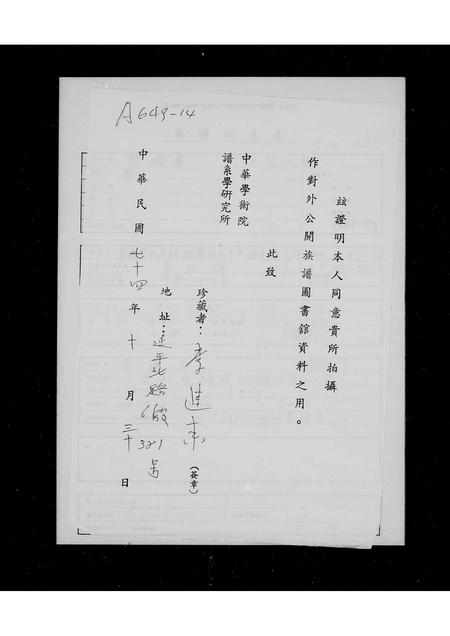 A649-14
茲證明本人同意貴所拍攝
作對外公開族譜圖書館資料之用。
此致
中華學術院
譜系學研究所
珍藏者：李進東（簽章）
地址：延平北路6段321號
中華民國七十四年十月三十日